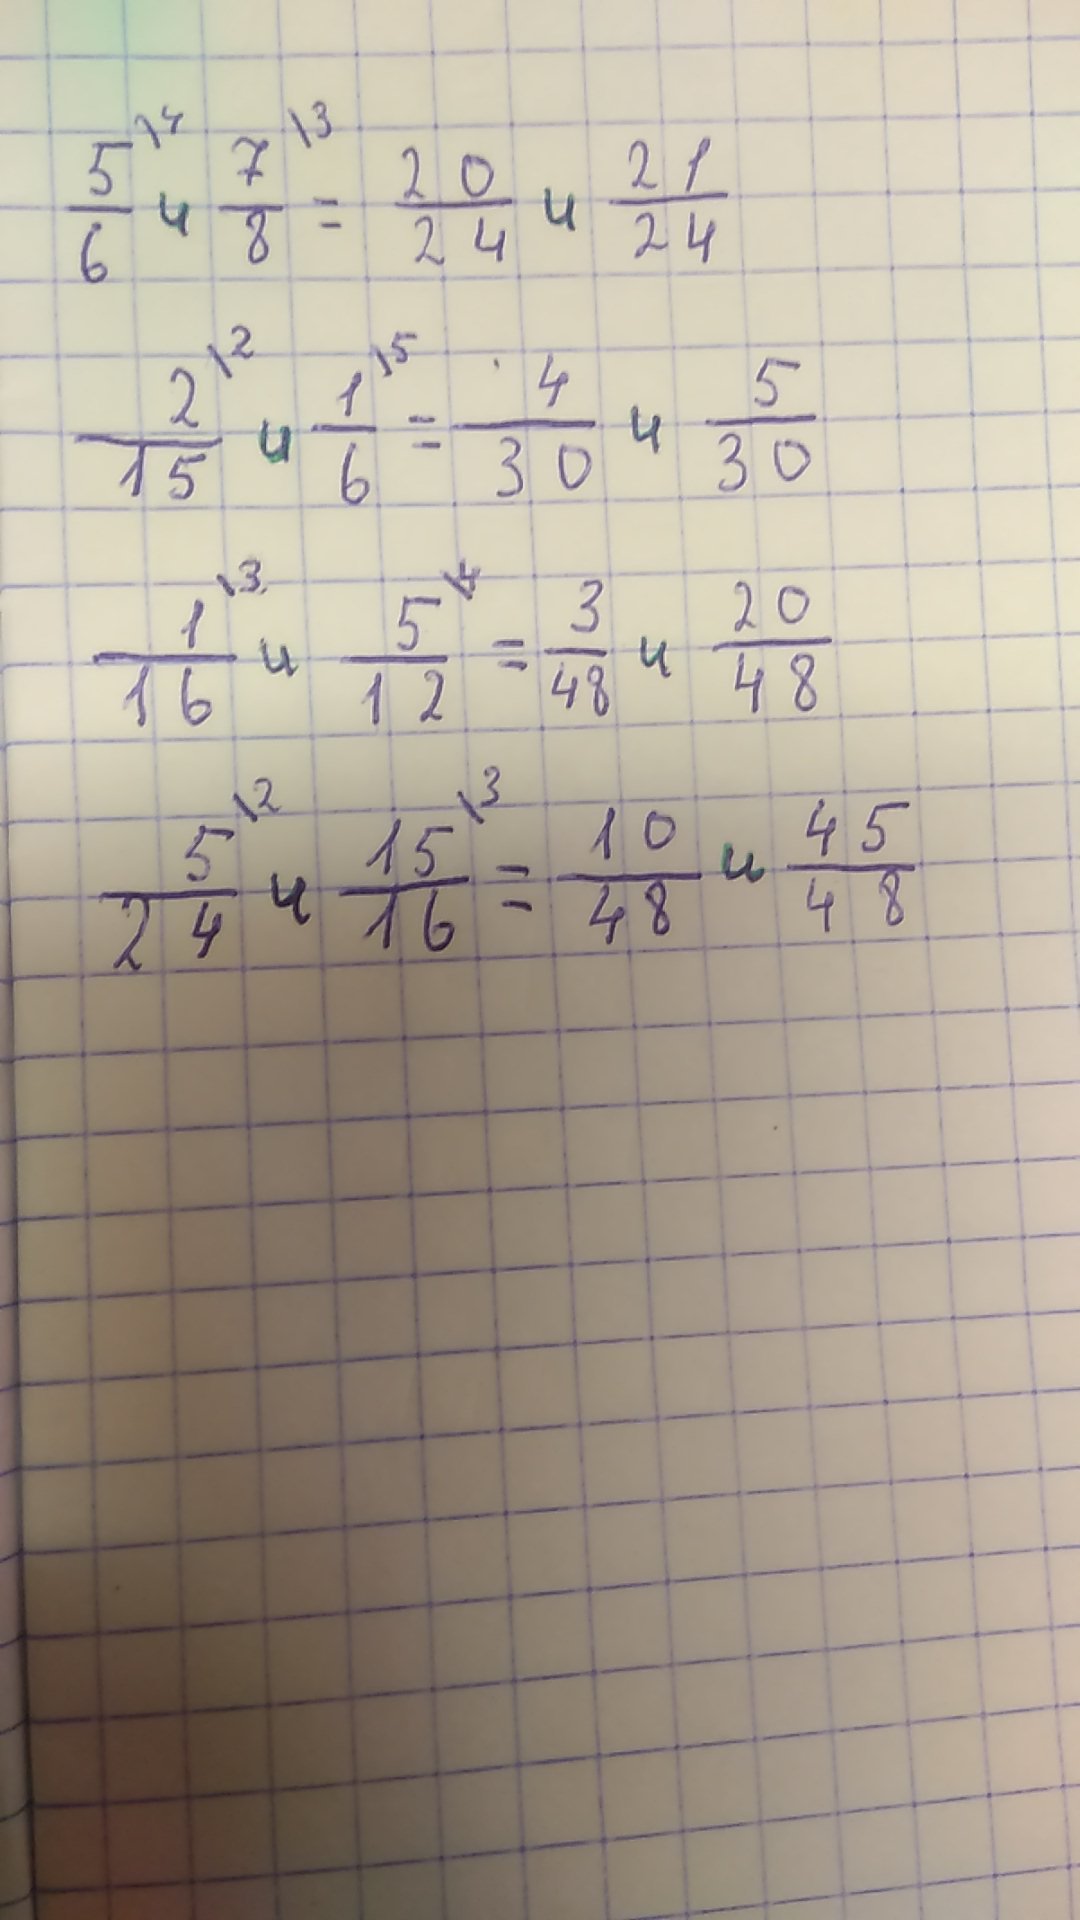 5/6 \4 и 7/8 \3 = 20/24 и 21/24
2/15 \2 и 1/6 \5 = 4/30 и 5/30
1/16 \3 и 5/12 \4 = 3/48 и 20/48
5/24 \2 и 15/16 \3 = 10/48 и 45/48